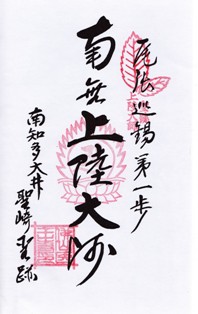 尾張巡錫第一歩
南無上陸大師
南知多大井
聖崎霊跡